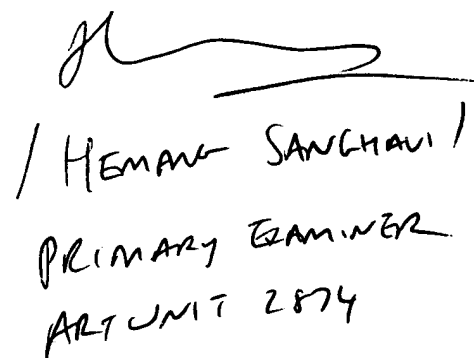 / HEMANG SANGHAVI /
PRIMARY EXAMINER
ART UNIT 2874